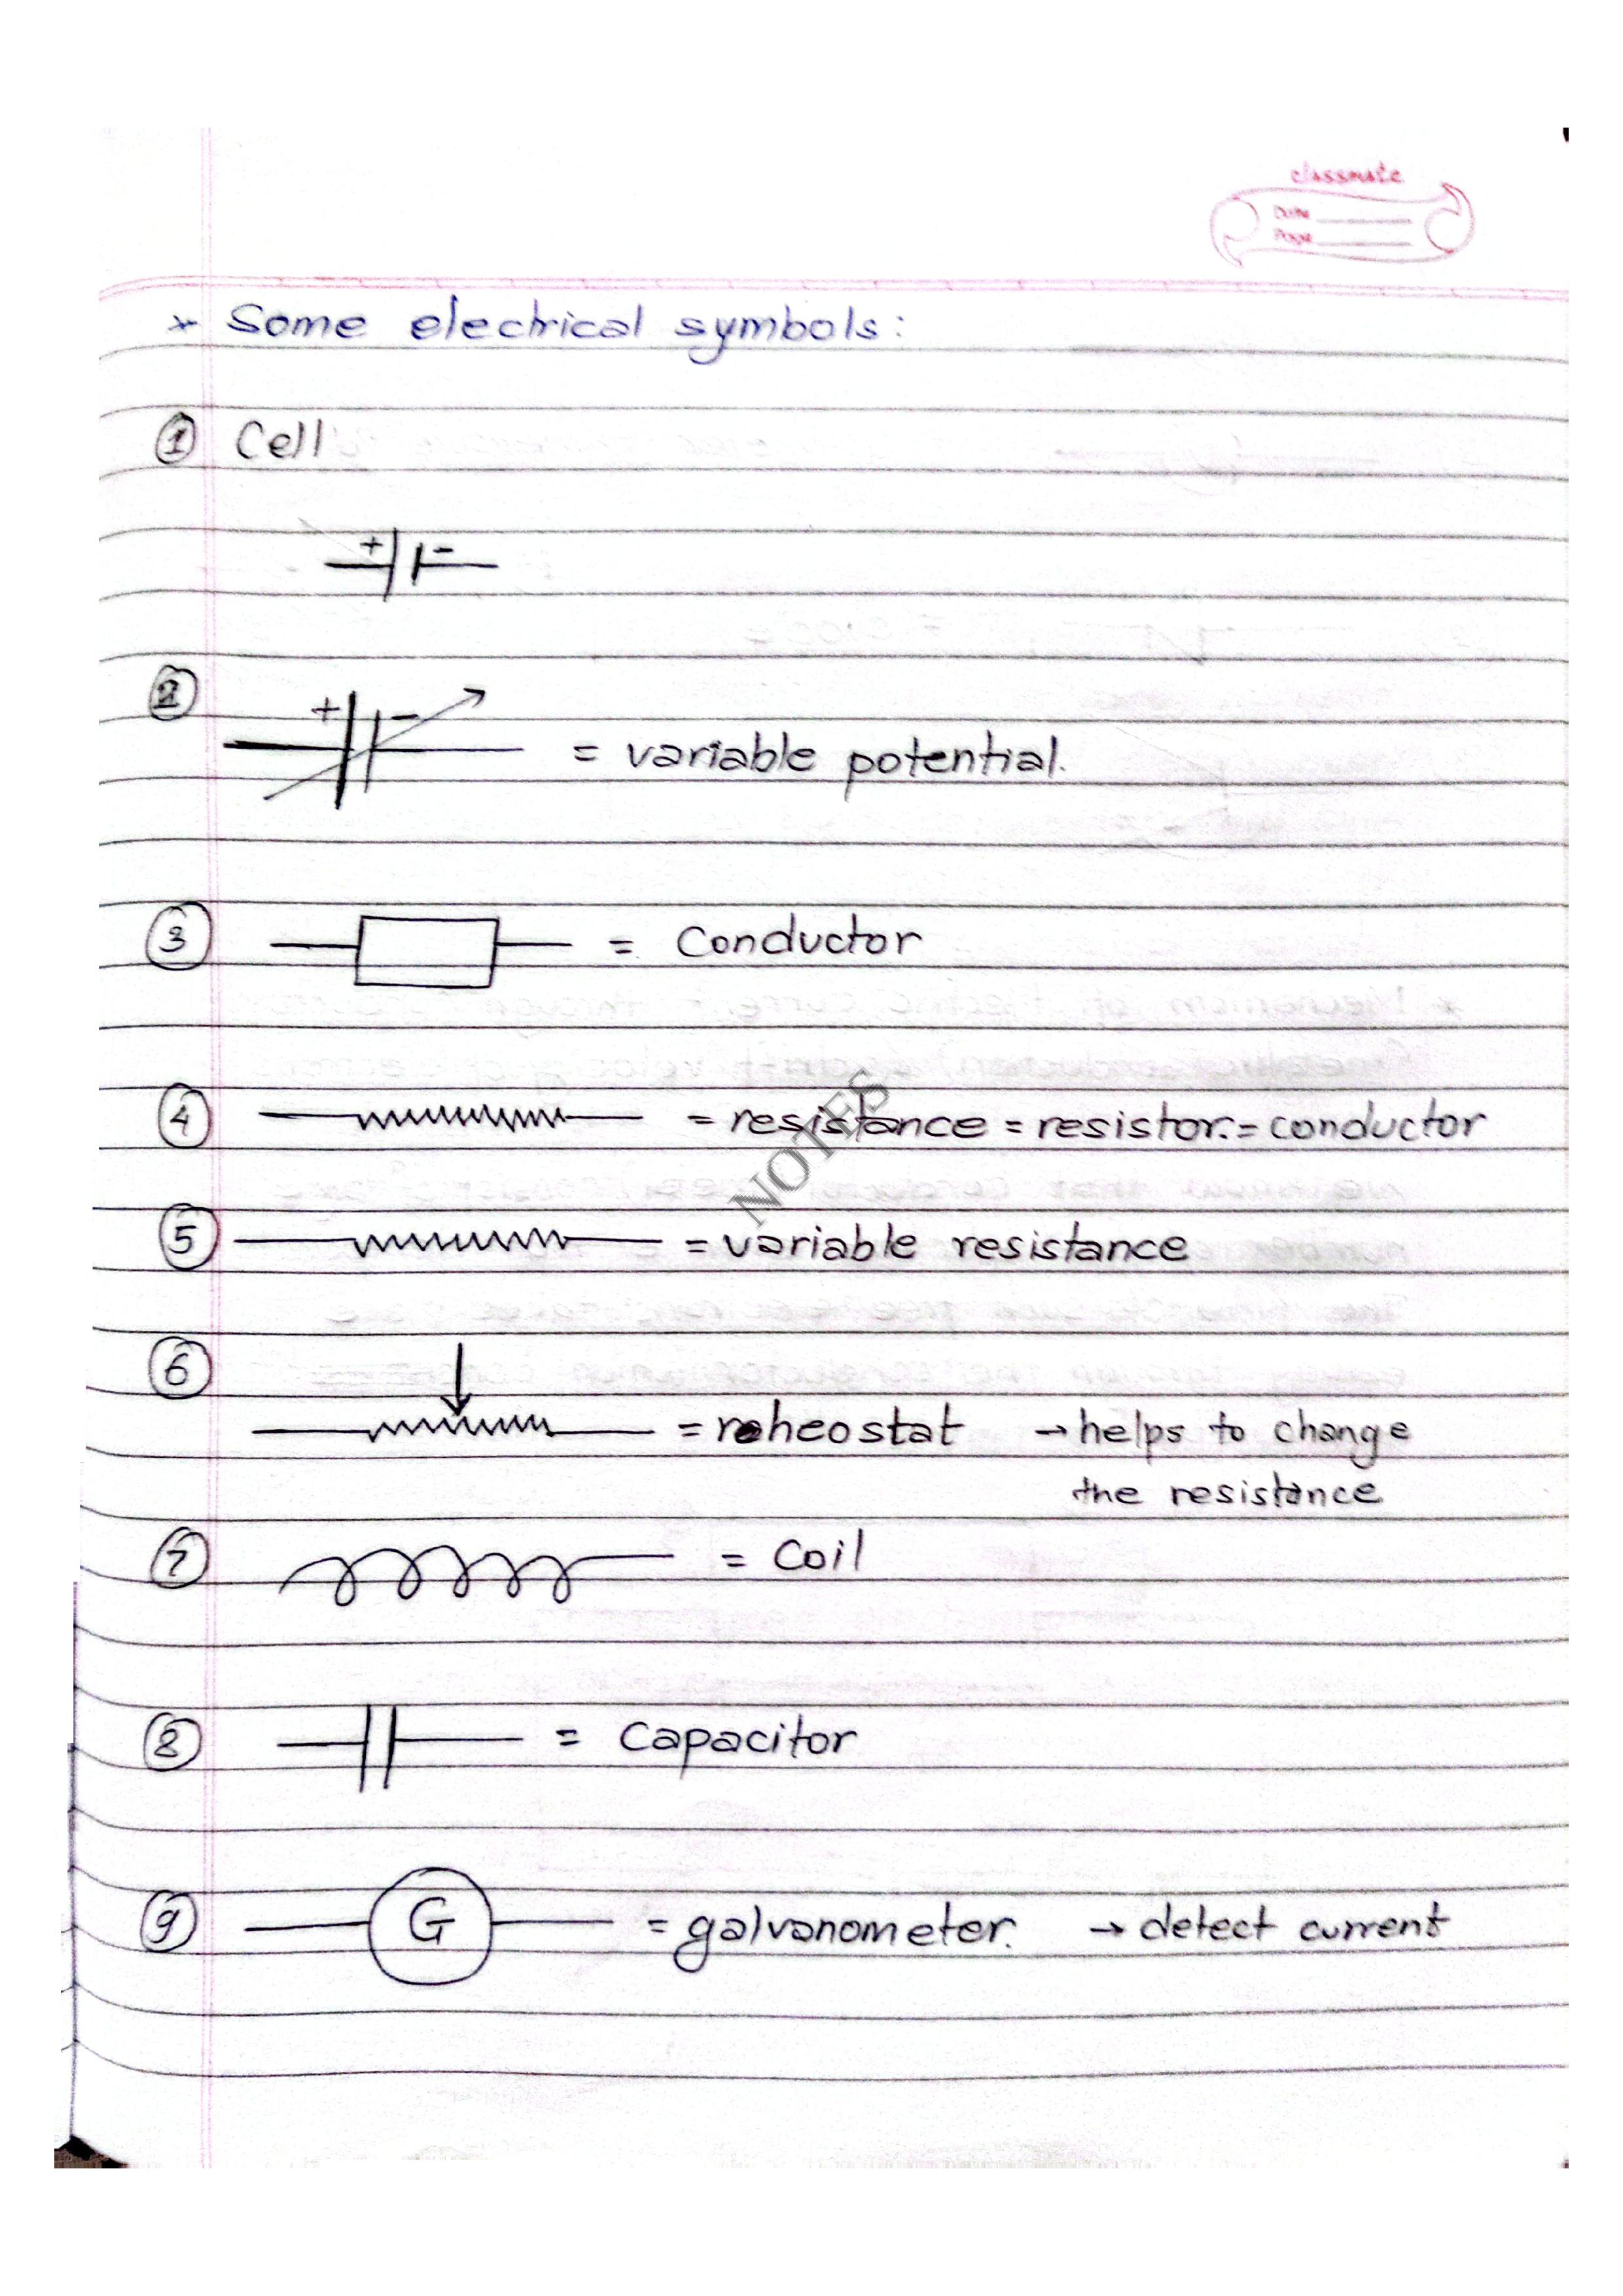 classmate
Date
Page
* Some electrical symbols:
① Cell
+ -
②
+ -
= variable potential.
③ = Conductor
④ = resistance = resistor. = conductor
NOTES
⑤ = variable resistance
⑥
= rheostat → helps to change
the resistance
⑦ = Coil
⑧ = Capacitor
⑨ G = galvanometer. → detect current